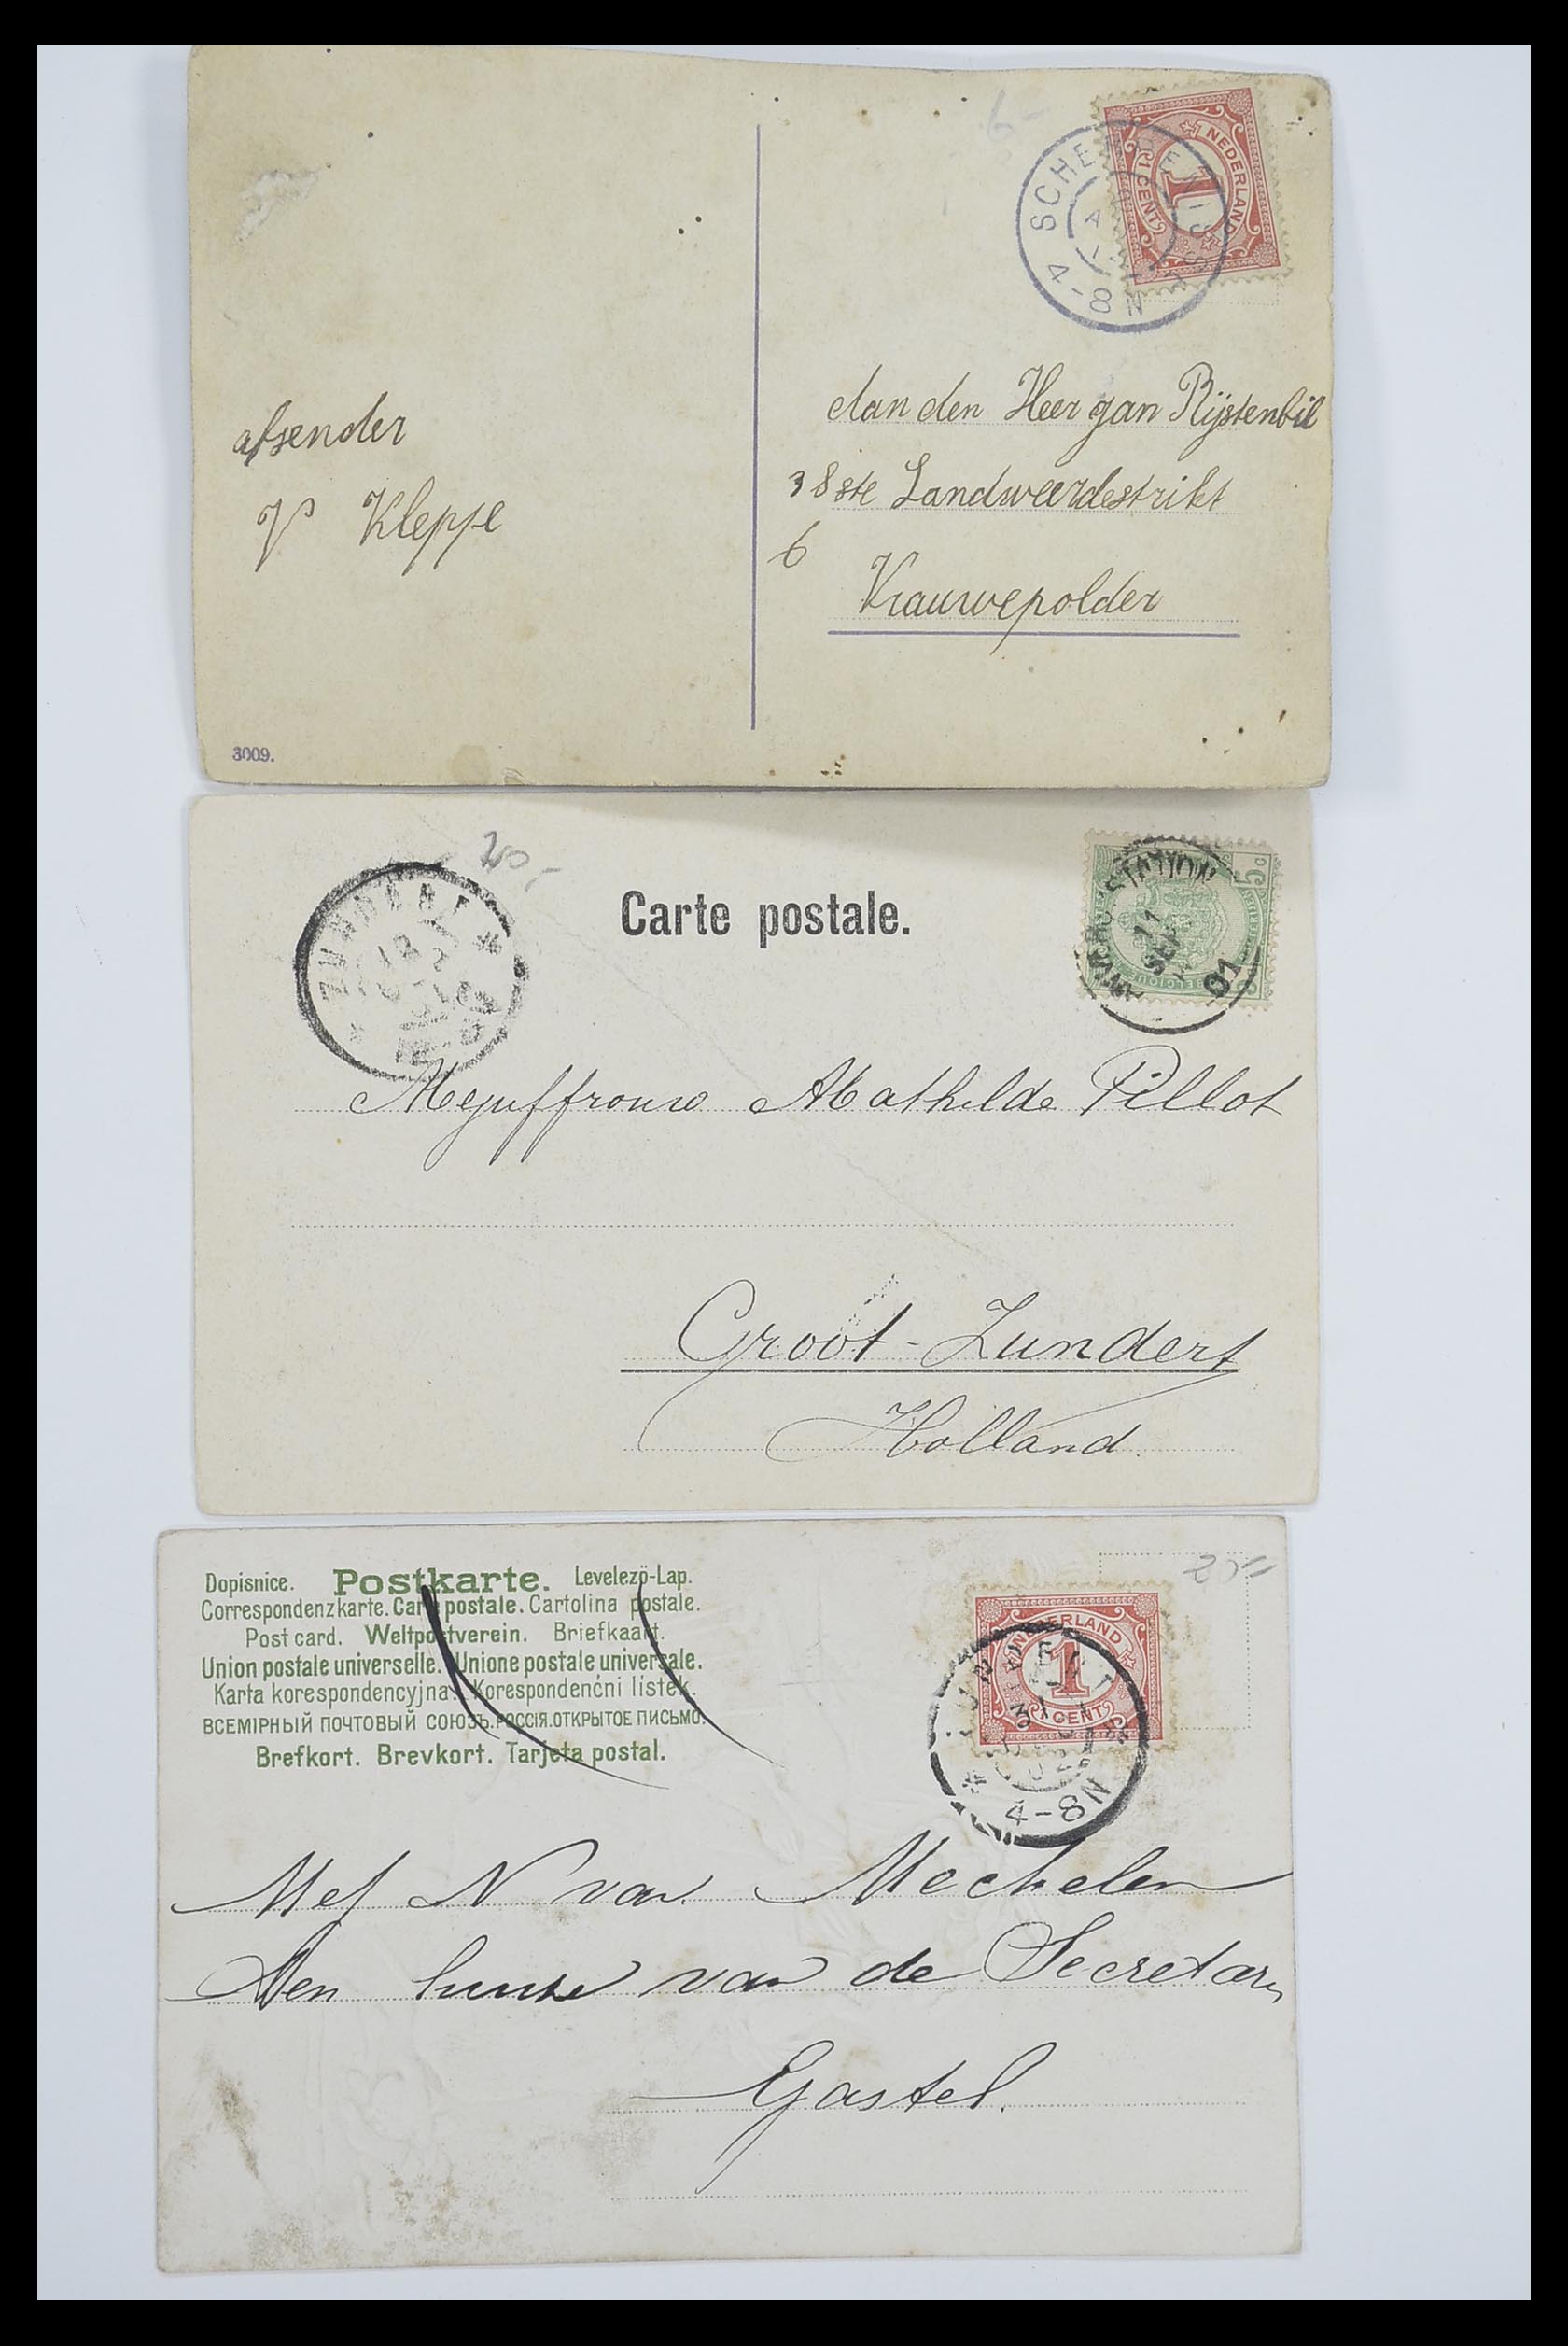 6-
NEDERLAND
1
1 CENT
4-8N
afsender
V Kleppe
Aan den Heer Jan Rijstenbil
38ste Landweerdestrikt
6
Krauwepolder
3009.
20,-
ZUNDERT
Carte postale.
5c
STATION
11
SEPT
01
Mejuffrouw Mathilde Pillot
Groot-Zundert
Holland.
Dopisnice. Postkarte. Levelező-Lap.
Correspondenzkarte. Carte postale. Cartolina postale.
Post card. Weltpostverein. Briefkaart.
Union postale universelle. Unione postale universale.
Karta korespondencyjna. Korespondenčni lístek.
ВСЕМІРНЫЙ ПОЧТОВЫЙ СОЮЗЪ. РОССІЯ. ОТКРЫТОЕ ПИСЬМО.
Brefkort. Brevkort. Tarjeta postal.
NEDERLAND
1
1 CENT
4-8N
Mej N van Mechelen
Den huize van de Secretaris
Gastel.